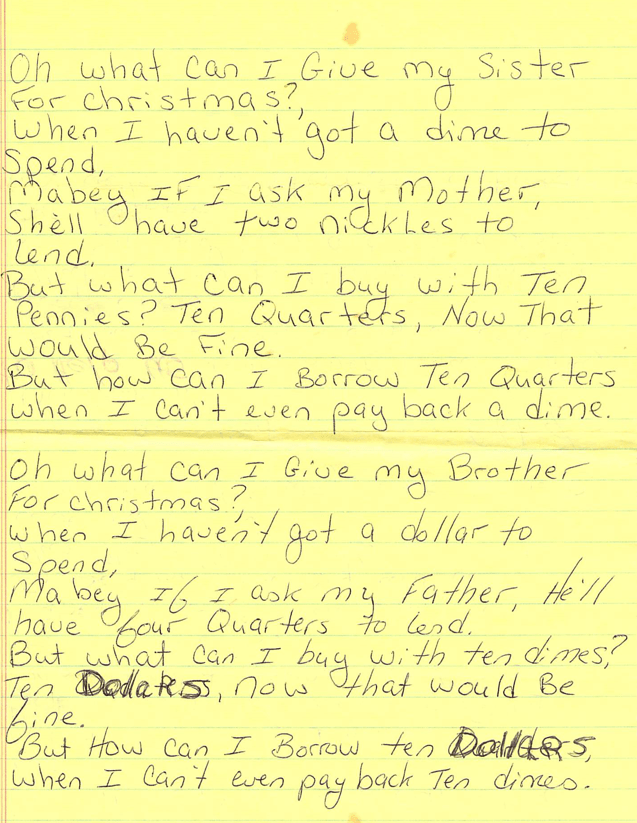 Oh what can I Give my Sister
For christmas?,
when I haven't got a dime to
Spend,
Mabey IF I ask my Mother,
She'll have two nickles to
lend.
But what can I buy with Ten
Pennies? Ten Quarters, Now That
would Be Fine.
But how can I Borrow Ten Quarters
when I can't even pay back a dime.
Oh what can I Give my Brother
For christmas?,
when I haven't got a dollar to
Spend,
Mabey If I ask my Father, He'll
have four Quarters to lend.
But what can I buy with ten dimes?
Ten Dollars, now that would Be
fine.
But How can I Borrow ten Dollars,
when I can't even pay back Ten dimes.